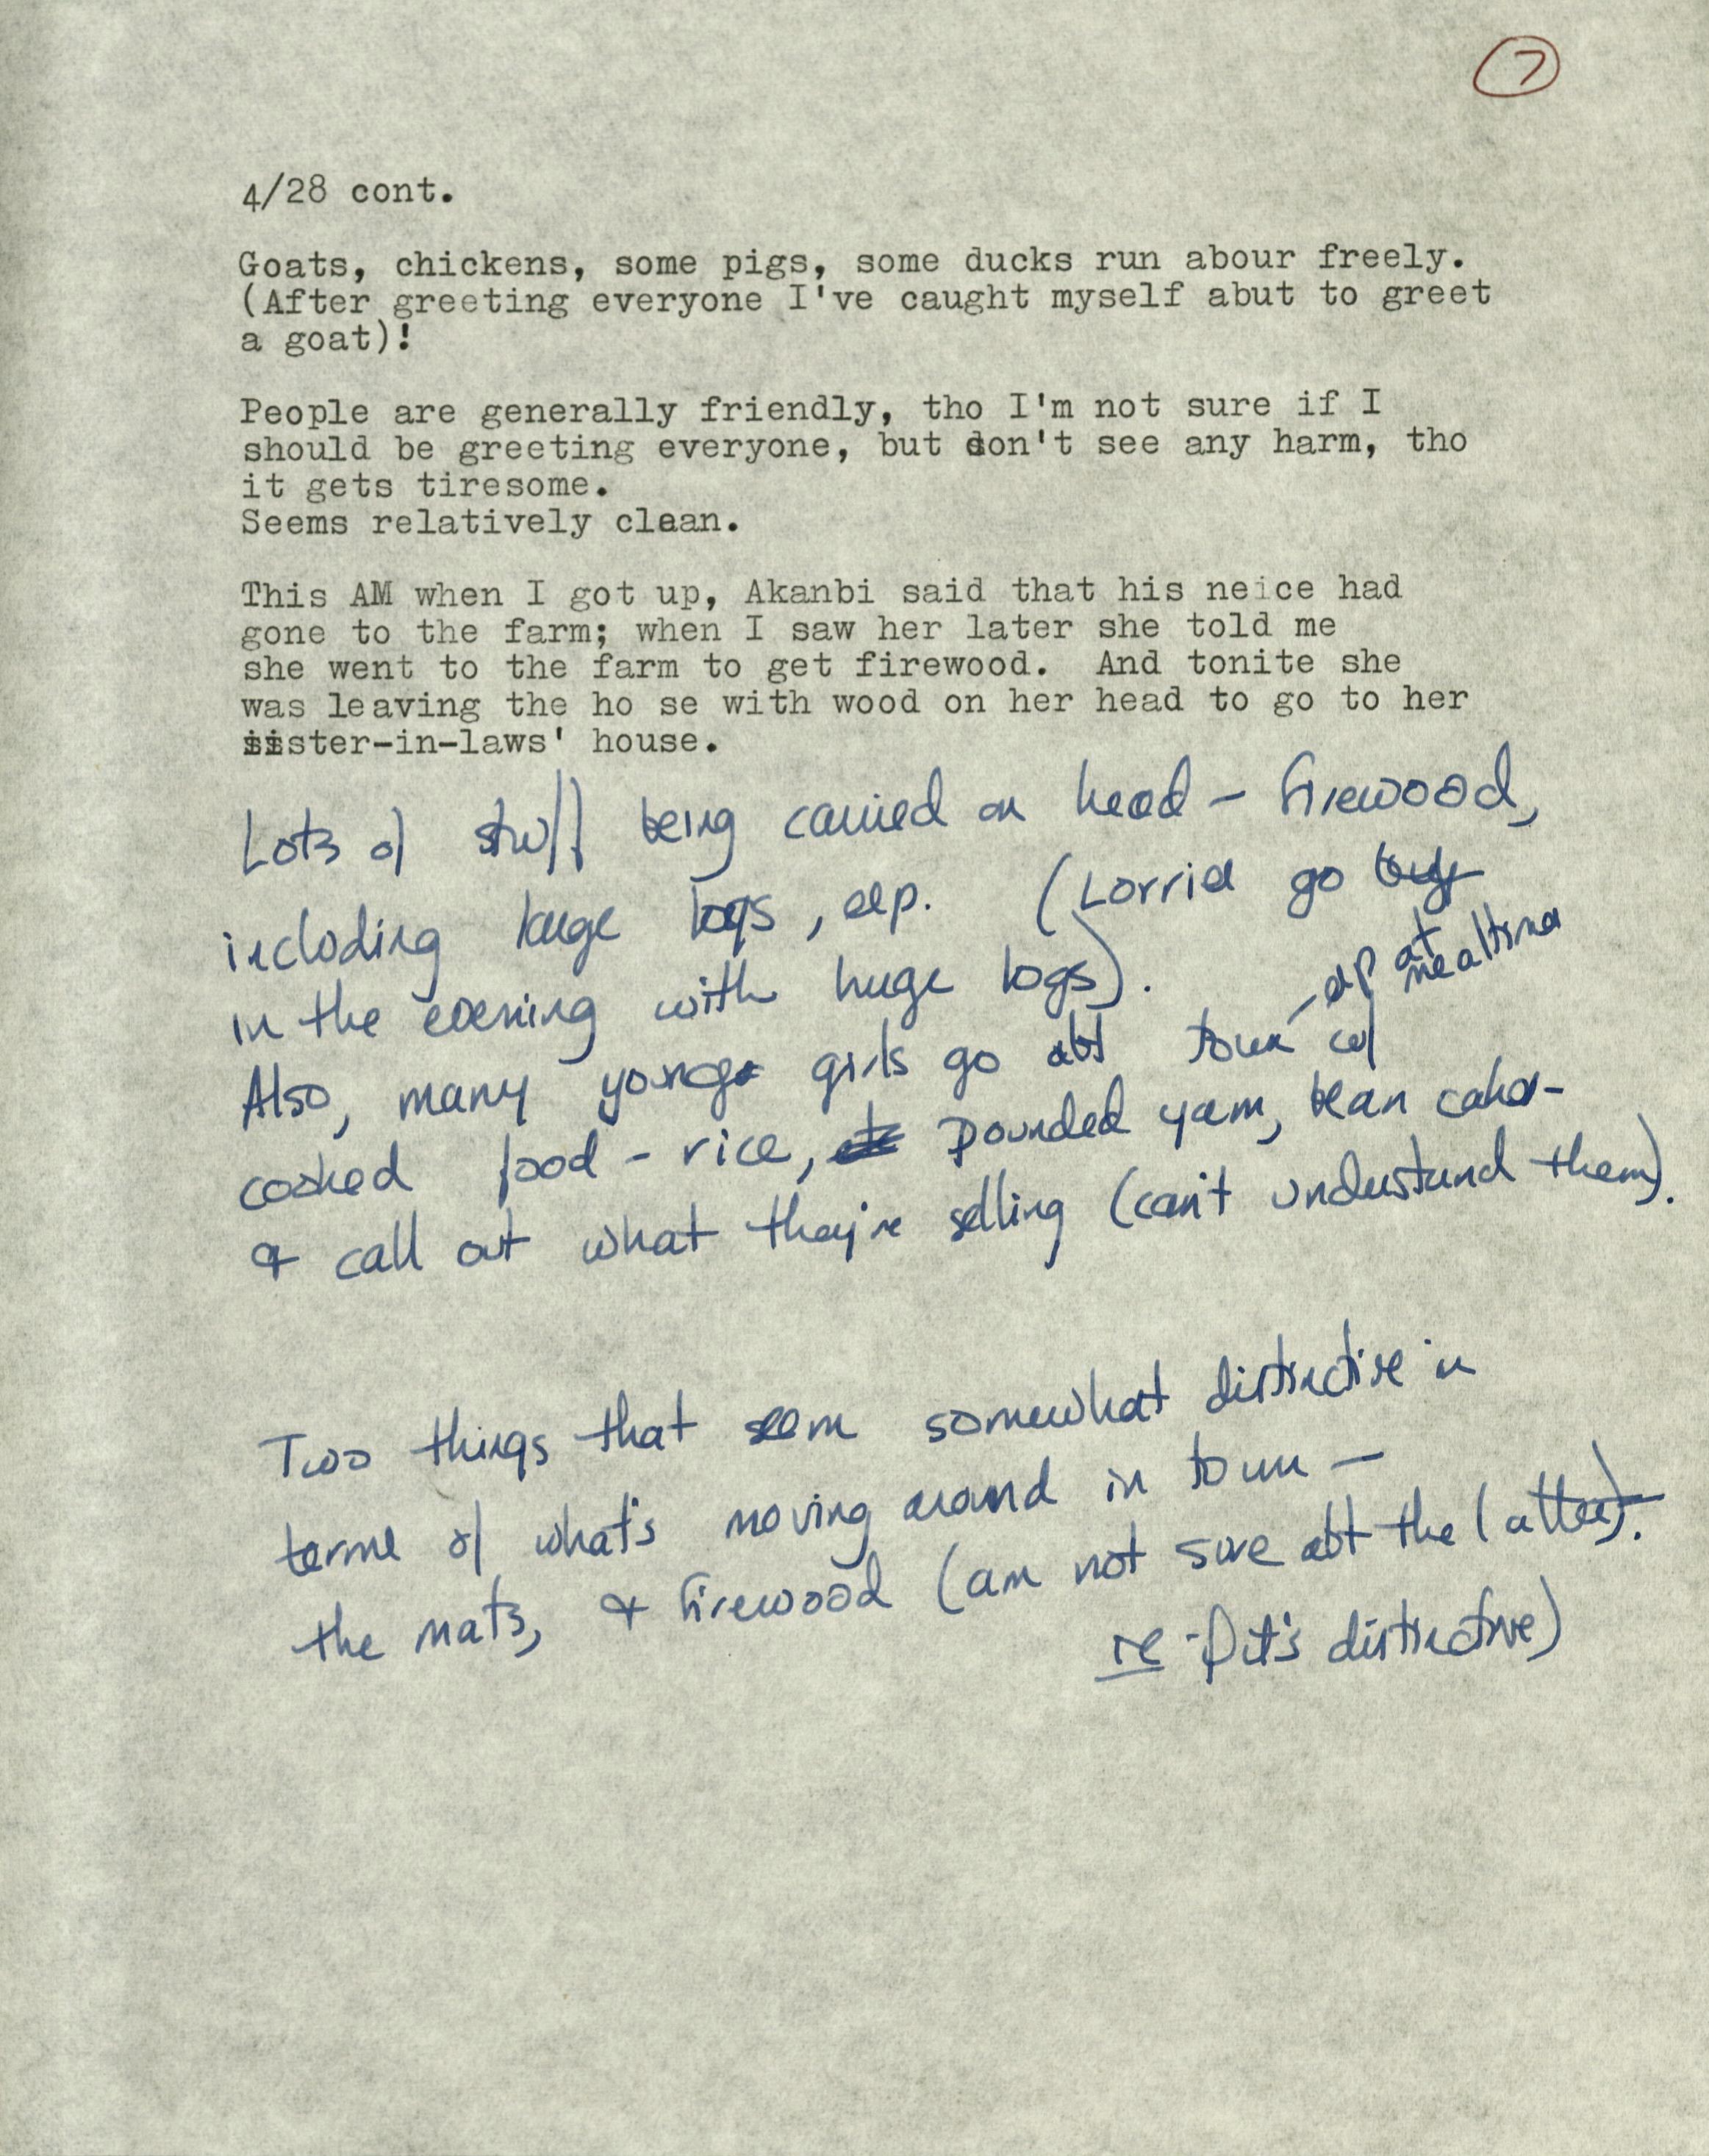 7
4/28 cont.
Goats, chickens, some pigs, some ducks run abour freely.
(After greeting everyone I've caught myself abut to greet
a goat)!
People are generally friendly, tho I'm not sure if I
should be greeting everyone, but don't see any harm, tho
it gets tiresome.
Seems relatively clean.
This AM when I got up, Akanbi said that his neice had
gone to the farm; when I saw her later she told me
she went to the farm to get firewood. And tonite she
was leaving the ho se with wood on her head to go to her
sister-in-laws' house.
Lots of stuff being carried on head - firewood,
including huge logs, esp. (Lorries go
in the evening with huge logs).
- esp at mealtimes
Also, many young girls go abt town w/
cooked food - rice, pounded yam, bean cakes -
& call out what they're selling (can't understand them).
Two things that seem somewhat distinctive in
terms of what's moving around in town -
the mats, & firewood (am not sure abt the latter).
re if it's distinctive)